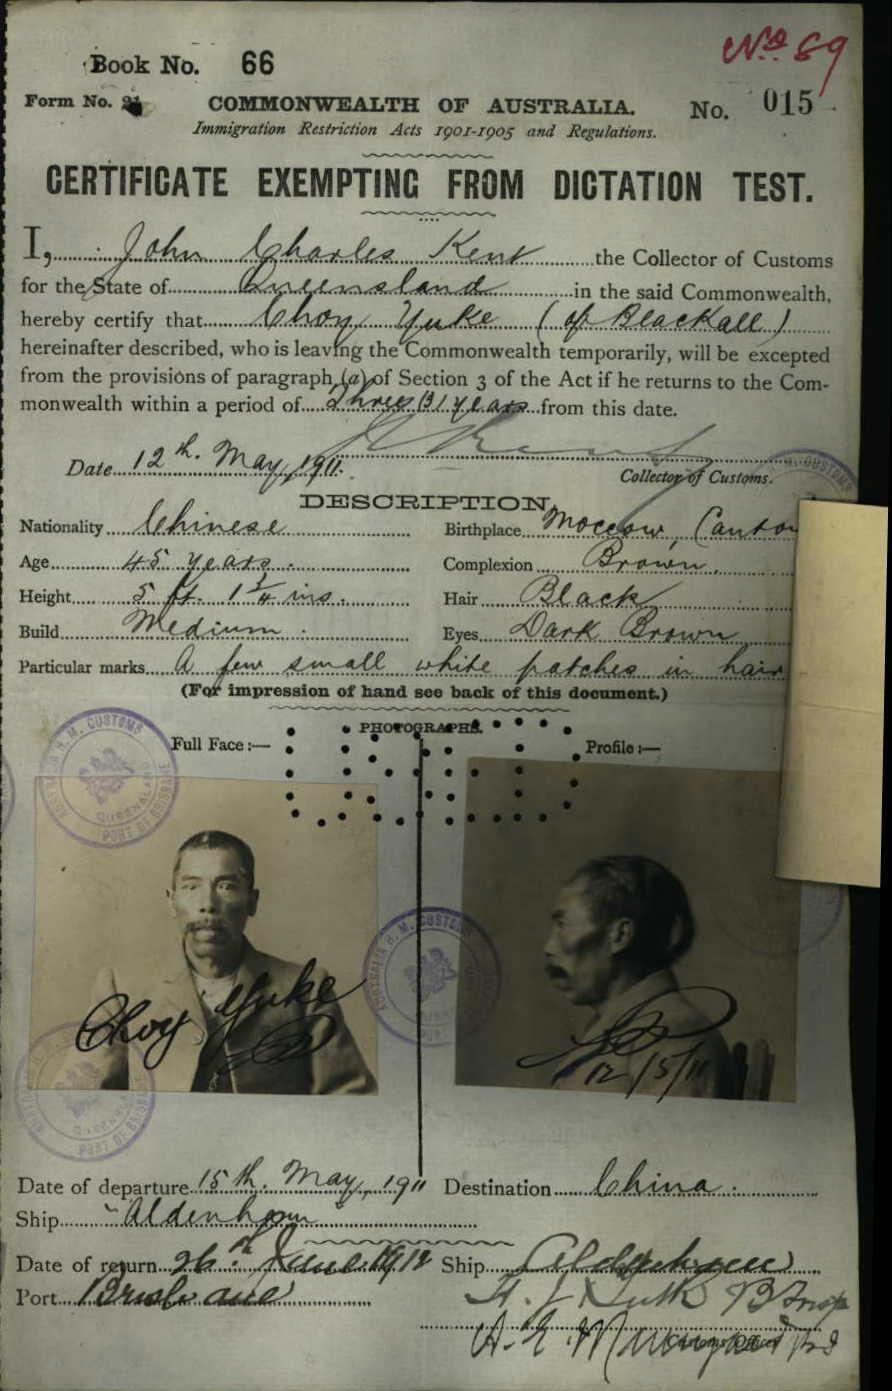 No. 89
Book No. 66
Form No. 21
COMMONWEALTH OF AUSTRALIA.
No. 015
Immigration Restriction Acts 1901-1905 and Regulations.
CERTIFICATE EXEMPTING FROM DICTATION TEST.
I, John Charles Kent the Collector of Customs
for the State of Queensland in the said Commonwealth,
hereby certify that Choy Yuke (of Blackall)
hereinafter described, who is leaving the Commonwealth temporarily, will be excepted
from the provisions of paragraph (a) of Section 3 of the Act if he returns to the Com-
monwealth within a period of Three (3) years from this date.
Date 12th. May, 1911.
Collector of Customs.
DESCRIPTION.
Nationality Chinese
Birthplace Moccow, Canton
Age 45 years.
Complexion Brown.
Height 5 ft. 1 3/4 ins.
Hair Black
Build Medium.
Eyes Dark Brown
Particular marks A few small white patches in hair
(For impression of hand see back of this document.)
PHOTOGRAPHS.
Full Face :—
Profile :—
AUSTRALIA H. M. CUSTOMS
QUEENSLAND
PORT OF BRISBANE
Choy Yuke
12/5/11
Date of departure 15th. May, 1911
Destination China.
Ship "Aldenham"
Date of return 26th June 1912
Ship Aldenham
Port Brisbane
Customs Officer